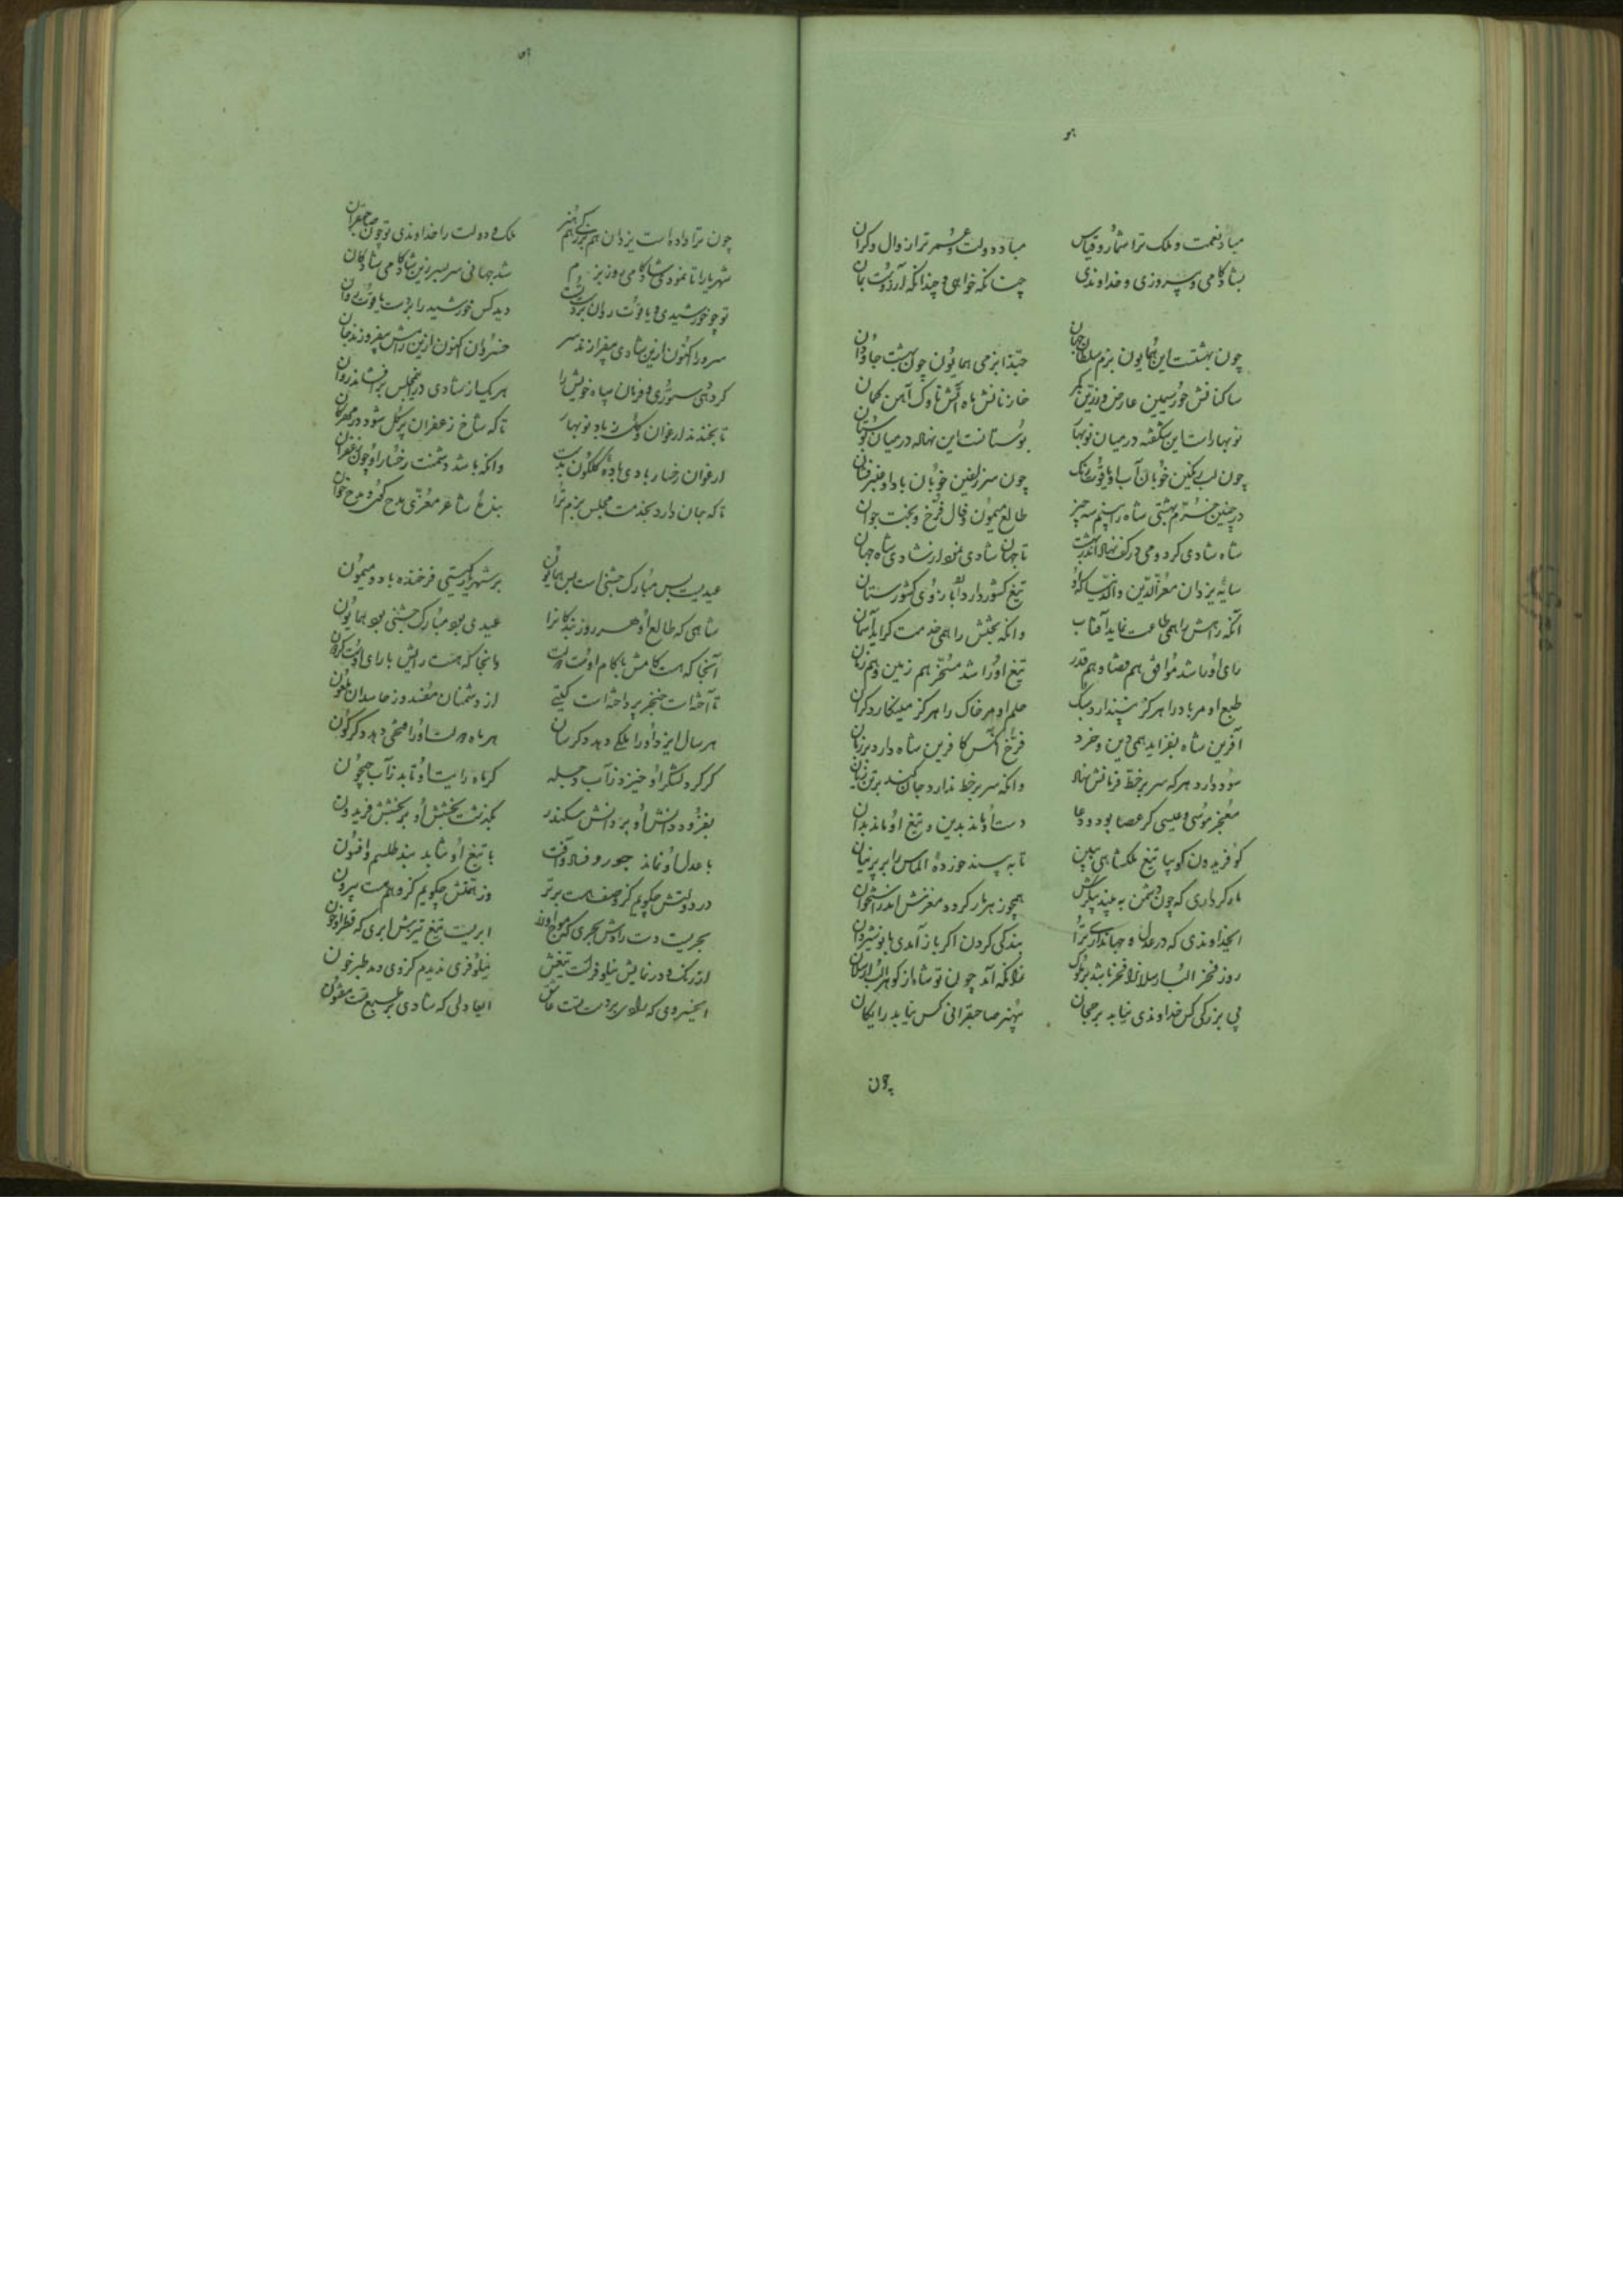 مباد نعمت و ملک ترا شمار و قیاس مباد دولت و عمر ترا زوال و کران
بشادکامی و پیروزی و خداوندی چنانکه خواهی و چندانکه آرزوت بمان
چون بهشتست این همایون بزم سلطان جهان حبّذا بزمی همایون چون بهشت جاودان
ساکنانش خور سیمین عارض و زرین کمر خازنانش ماه آتش ناوک آهن کمان
نوبهارست این شکفته در میان نوبهار بوستانست این نهاده در میان بوستان
چون لب رنگین خوبان آب او یاقوت رنگ چون سر زلفین خوبان باد او عنبر فشان
در چنین خرّم بهشتی شاه را بینم سه چیز طالع میمون و فال فرّخ و بخت جوان
شاه شادی کرد و می در کف نهاد اندر بهشت تا جهان شادی نمود از شادی شاه جهان
سایه یزدان معزّالدّین والدّنیا که او تیغ کشوردار دارد رای کشورستان
آنکه رایش را همی طاعت نماید آفتاب وانکه بختش را همی خدمت کراید آسمان
رای او را شد موافق هم قضا و هم قدر تیغ او را شد مسخّر هم زمین و هم زمان
طبع او مر باد را هرگز نپندارد سبک حلم او مر خاک را هرگز نینگارد گران
آفرین شاه بفزاید همی دین و خرد فرّخ آنکس کافرین شاه دارد بر زبان
سود دارد هر که سر بر خط فرمانش نهاد وانکه سر بر خط ندارد جان کند بر تن زیان
معجز موسی و عیسی گر عصا بود و دعا دست او ماند بدین و تیغ او ماند بدان
کو فریدون کو بیا تیغ ملکشاهی ببین تا به پسند خورده الماس را بر پرنیان
مارکرداری که چون دشمن به بیند پیکرش همچو زهر مار گردد مغزش اندر استخوان
ایخداوندی که در عدل و جهانداری ترا بندگی کردن اگر باز آمدی با نوشیروان
روز فخر الب ارسلانرا فخر باشد بر ملوک زانکه آمد چون تو شاه از گوهر الب ارسلان
بی بزرگی کس خداوندی نیابد بر جهان بی هنر صاحبقرانی کس نیابد رایگان
چون
چون ترا داده است یزدان هم بزرگی هم هنر ملک و دولت را خداوندی تو چون صاحبقران
شهریارا تا نمودی شادکامی روز بزم شد جهانی سر بسر زین شادکامی شادمان
تو چو خورشیدی و یاقوت روان بر دست تست دید کس خورشید را بر دست یاقوت روان
سرورا اکنون ازین شادی بیفرازند سر خسروان اکنون ازین رامش بیفروزند جان
کرد همی سوری و فرمان سپاه خویش را هر یک از شادی درین مجلس برافشاند روان
تا بخندند ارغوان و گل ز باد نوبهار تا که شاخ زعفران پر گل شود در مهرگان
ارغوان رخسار بادی با باده گلگون بدست وانکه باشد دشمنت رخسار او چون زعفران
تا که جان دارد بخدمت مجلس بزم ترا بنده شاعر معزّی مدح گوی و مدح خوان
عیدیست بس مبارک جشنی است بس همایون بر شهریار گیتی فرخنده باد و میمون
شاهی که طالع او هر روز بندگانرا عیدی بود مبارک جشنی بود همایون
آنجا که هست کامش با کام اوست دولت وانجا که هست رایش با رای اوست گردون
تا آخته است خنجر پرداخته است گیتی از دشمنان مفسد وز حاسدان ملعون
هر سال ایزد او را ملکی دهد دگر سان هر ماه دولت او را فتحی دهد دگرگون
گر گرد لشکر او خیزد ز آب دجله گر ماه رایت او تابد ز آب جیحون
بفزود دانش او بر دانش سکندر بگذشت بخشش او بر بخشش فریدون
با عدل او نماند جور و فساد و آفت با تیغ او نشاید بند طلسم و افسون
در دولتش چگویم کز وصف هست برتر وز همتش چگویم کز وهم هست بیرون
بحریست دست رادش بحری که موج او زر ابریست تیغ تیزش ابری که قطر او خون
از رنگ و در نمایش نیلوفرست تیغش نیلوفری ندیدم کز وی دمد طبرخون
ایخسروی که رادی بر دست تست عاشق ایعادلی که شادی بر طبع تست مفتون